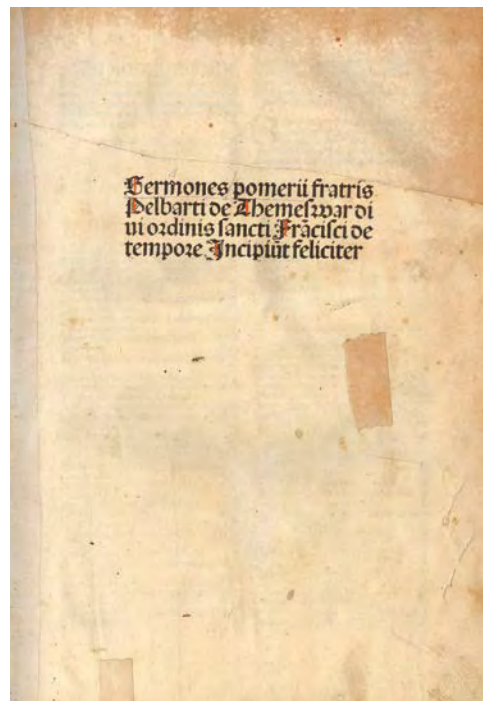 Sermones pomerii fratris
Pelbarti de Themeswar di
ui ordinis sancti Frācisci de
tempore Incipiūt feliciter